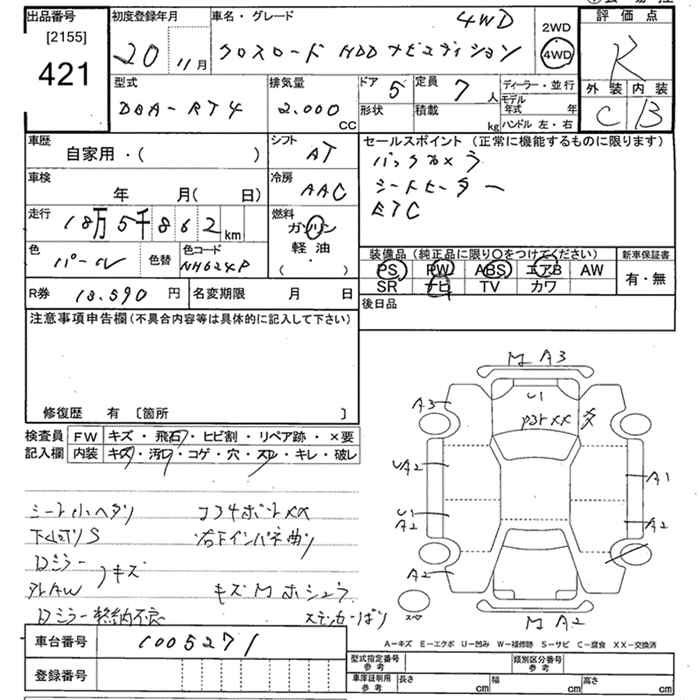 出品番号
[2155]
421
初度登録年月
20 11月
車名・グレード
4WD
クロスロード HDD ナビエディション
2WD
4WD
評価点
R
外装 内装
C B
型式
DBA-RT4
排気量
2.000
CC
ドア 5
形状
定員 7人
積載 kg
ディーラー・並行
モデル年式 年
ハンドル 左・右
車歴
自家用・( )
シフト
AT
セールスポイント (正常に機能するものに限ります)
バックカメラ
シートヒーター
ETC
車検
年 月(日)
冷房
AAC
走行
18万5千862km
燃料
ガソリン
軽油
( ・ )
色
パール
色替
色コード
NH624P
装備品 (純正品に限り〇をつけてください)
PS PW ABS エアB AW
SR ナビ TV カワ
新車保証書
有・無
R券 円
名変期限 月 日
後日品
注意事項申告欄(不具合内容等は具体的に記入して下さい)
修復歴 有 〔箇所 〕
検査員記入欄
FW キズ・飛石・ヒビ割・リペア跡・×要
内装 キズ・汚れ・コゲ・穴・スレ・キレ・破レ
シート小ヘタリ
コア4ボルトXX
下廻りS
右下インパネ曲り
Dミラー
アルAW
キズ
キズMホシュウ
Dミラー格納不良
ステッカーばり
M A3
A3
U1
UA2
U1
A2
A2
A1
A2
スペア
M A2
車台番号
1005271
登録番号
A－キズ E－エクボ U－凹み W－補修跡 S－サビ C－腐食 XX－交換済
型式指定番号
参考
類別区分番号
参考
車庫証明用
参考
長さ cm
幅 cm
高さ cm